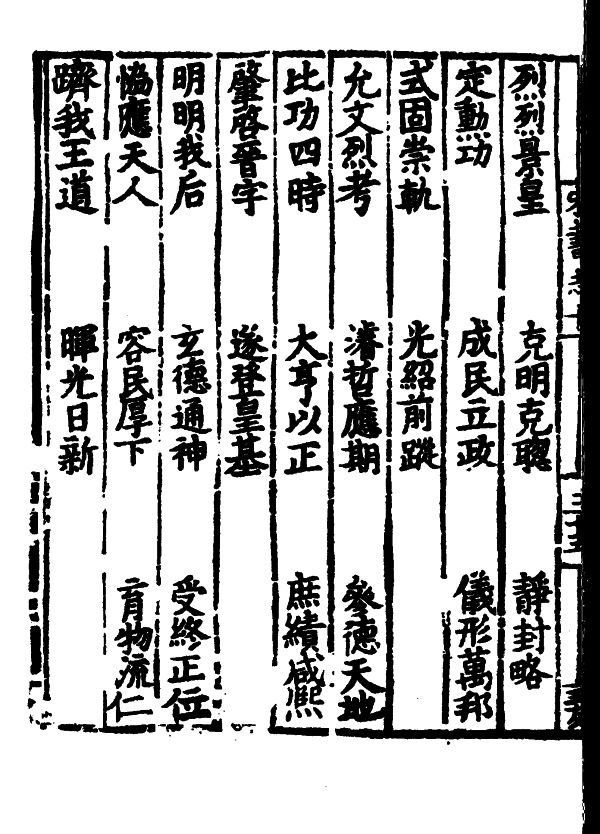 烈烈景皇　克明克聰　靜封略
定勳功　成民立政　儀形萬邦
式固崇軌　光紹前蹤
允文烈考　濬哲應期　參德天地
比功四時　大亨以正　庶績咸熙
肇啓晉宇　遂登皇基
明明我后　玄德通神　受終正位
協應天人　容民厚下　育物流仁
躋我王道　暉光日新